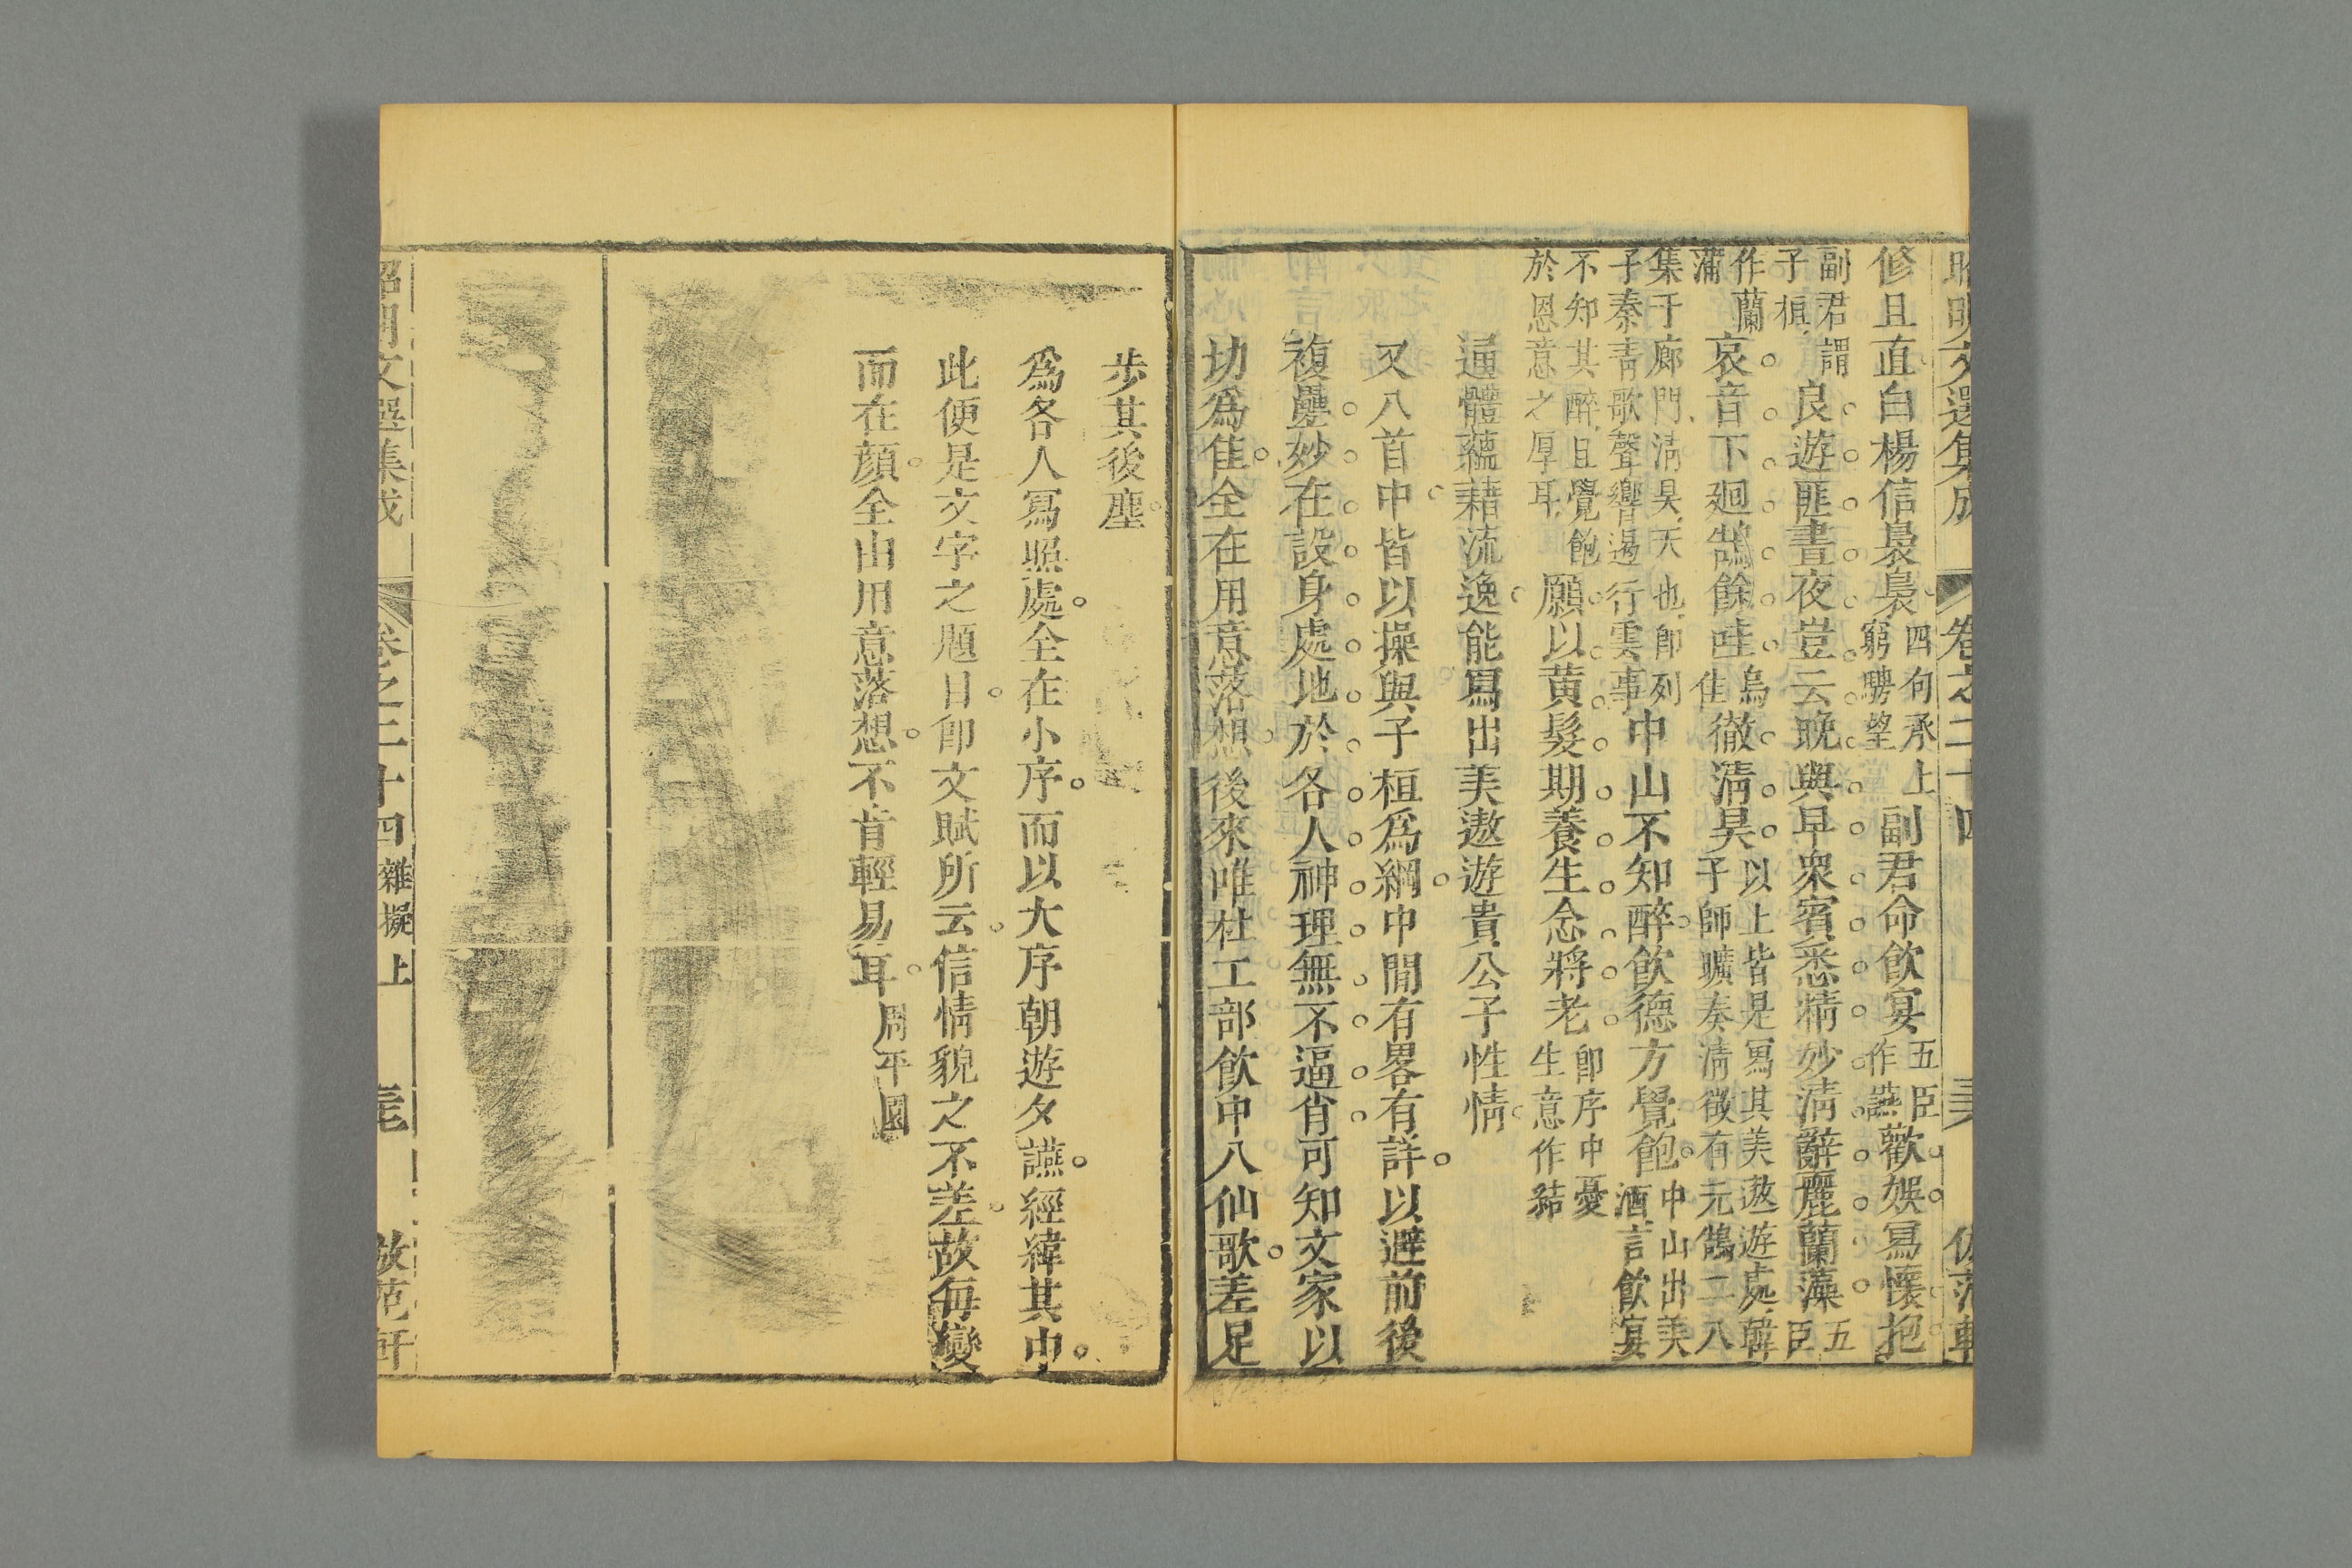 昭明文選集成 卷之二十四
修且直白楊信裊裊四句承上窮騁望副君命飲宴五臣作讌歡娛寫懷抱
副君謂子桓良遊匪晝夜豈云晚與早衆賓悉精妙清辭麗蘭藻五臣
作蘭蒲哀音下迴鵠餘哇烏佳徹清昊以上皆是寫其美遨遊處韓子師曠奏清徵有元鶴二八
集于廊門清昊天也即列子秦青歌聲響遏行雲事中山不知醉飲德方覺飽中山出美酒言飲宴
不知其醉且覺飽於恩意之厚耳願以黃髮期養生念將老即序中憂生意作結
通體蘊藉流逸能寫出美遨遊貴公子性情
又八首中皆以操與子桓為綱中間有畧有詳以避前後
複疊妙在設身處地於各人神理無不逼肖可知文家以
切為佳全在用意落想後來唯杜工部飲中八仙歌差足
步其後塵
為各人寫照處全在小序而以大序朝遊夕讌經緯其中
此便是文字之題目卽文賦所云信情貌之不差故每變
而在顏全由用意落想不肯輕易耳周平園
昭明文選集成 卷之二十四 雜擬上 放范軒